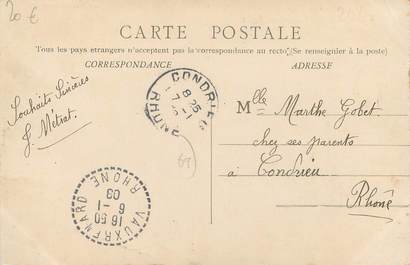 20 €
CARTE POSTALE
Tous les pays etrangers n'acceptent pas la correspondance au recto (Se renseigner à la poste)
CORRESPONDANCE
ADRESSE
Souhaits Sincères
J. Métrat.
CONDRIEU
8 25
7 -1
RHONE
Mlle Marthe Gobet
chez ses parents
à Condrieu
Rhône
69
VAUXRENARD
16 50
6 -1
03
RHONE